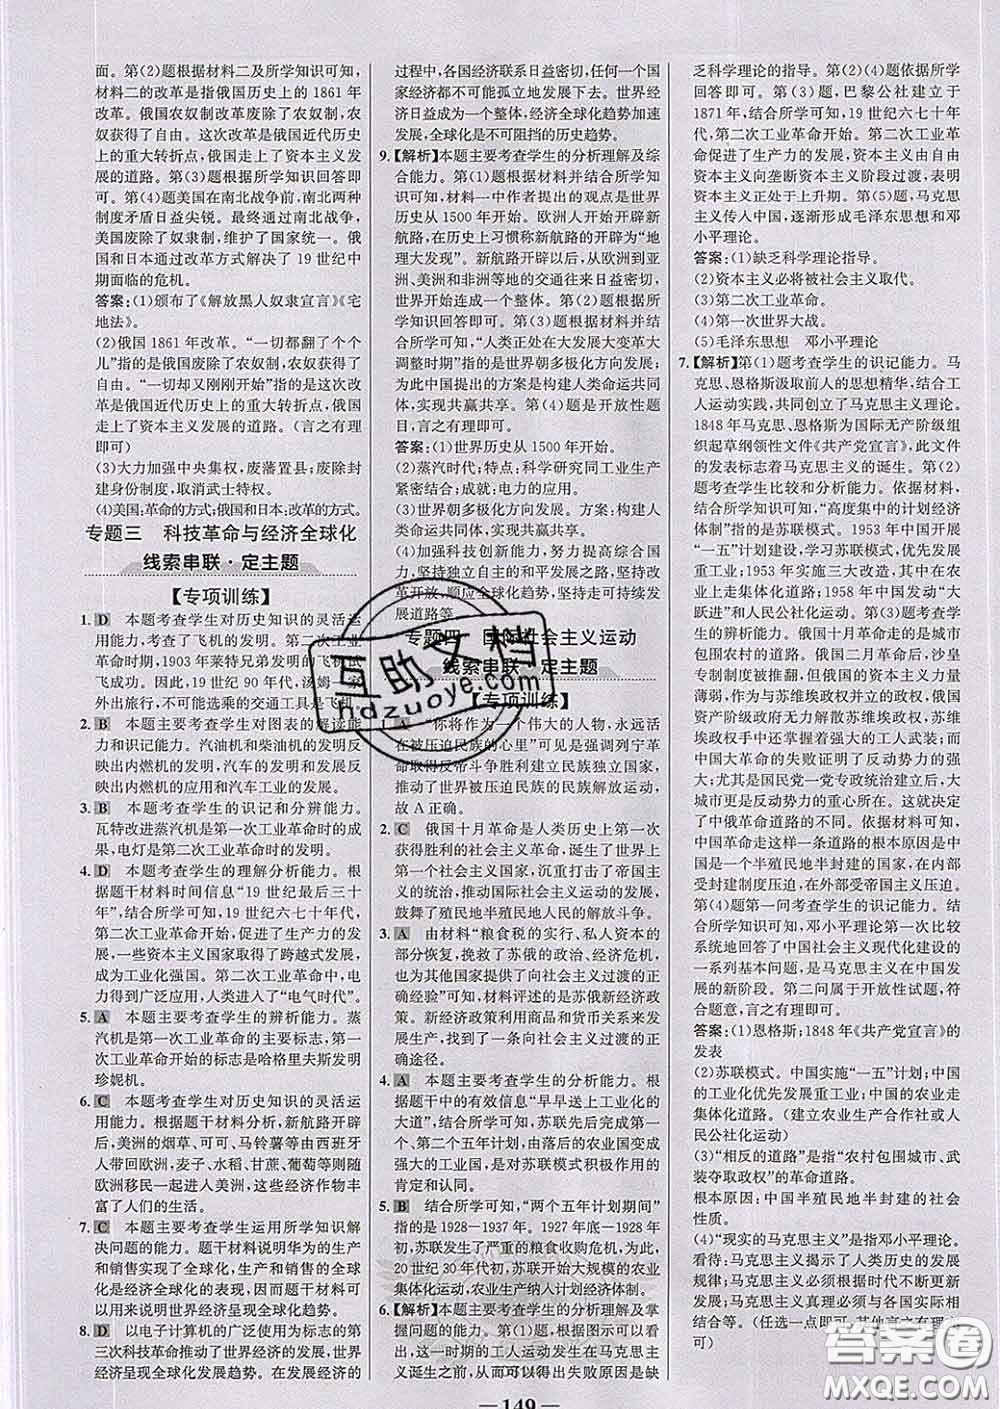 面。第(2)题根据材料二及所学知识可知，
材料二的改革是指俄国历史上的1861年
改革。俄国农奴制改革废除了农奴制，农
奴获得了自由。这次改革是俄国近代历史
上的重大转折点，俄国走上了资本主义发
展的道路。第(3)题根据所学知识回答即
可。第(4)题美国在南北战争前，南北两种
制度矛盾日益尖锐。最终通过南北战争，
美国废除了奴隶制，维护了国家统一。俄
国和日本通过改革方式解决了19世纪中
期面临的危机。
答案:(1)颁布了《解放黑人奴隶宣言》《宅
地法》。
(2)俄国1861年改革。“一切都翻了个个
儿”指的是俄国废除了农奴制，农奴获得了
自由。“一切却又刚刚开始”指的是这次改
革是俄国近代历史上的重大转折点，俄国
走上了资本主义发展的道路。(言之有理
即可)
(3)大力加强中央集权，废藩置县；废除封
建身份制度，取消武士特权。
(4)美国:革命的方式;俄国和日本:改革的方式。
专题三　科技革命与经济全球化
线索串联·定主题
【专项训练】
1. D　本题考查学生对历史知识的灵活运
用能力。考查了飞机的发明。第二次工业
革命时期，1903年莱特兄弟发明的飞机试
飞成功。因此，19世纪90年代，汤姆一家
外出旅行，不可能选乘的交通工具是飞机。
2. B　本题主要考查学生对图表的解读能
力和识记能力。汽油机和柴油机的发明反
映出内燃机的发明，汽车的发明与发展反
映出内燃机的应用和汽车工业的发展。
3. B　本题考查学生的识记和分辨能力。
瓦特改进蒸汽机是第一次工业革命时的成
果，电灯是第二次工业革命时的发明。
4. D　本题考查学生的理解分析能力。根
据题干材料时间信息“19世纪最后三十
年”，结合所学可知，19世纪六七十年代，
第二次工业革命开始，促进了生产力的发
展，一些资本主义国家取得了跨越式发展，
成为工业化强国。第二次工业革命中，电
力得到广泛应用，人类进入了“电气时代”。
5. A　本题主要考查学生的辨析能力。蒸
汽机是第一次工业革命的主要标志，第一
次工业革命开始的标志是哈格里夫斯发明
珍妮机。
6. C　本题考查学生对历史知识的灵活运
用能力。根据题干材料分析，新航路开辟
后，美洲的烟草、可可、马铃薯等由西班牙
人带回欧洲，麦子、水稻、甘蔗、葡萄等则随
欧洲移民进入美洲，这些经济作物丰富了人们的生活。
7. C　本题主要考查学生运用所学知识解
决问题的能力。题干材料说明华为的生产
和销售实现了全球化，生产和销售的全球
化是经济全球化的表现，因而题干材料可
以用来说明世界经济呈现全球化趋势。
8. D　以电子计算机的广泛使用为标志的第
三次科技革命推动了世界经济的发展，世界
经济呈现全球化发展趋势。在发展经济的
过程中，各国经济联系日益密切，任何一个国
家经济都不可能孤立地发展。世界经济
日益成为一个整体，经济全球化趋势加速
发展，全球化是不可阻挡的历史趋势。
9.【解析】本题主要考查学生的分析理解及综
合能力。第(1)题根据材料并结合所学知
识可知，材料一中作者提出的观点是世界
历史从1500年开始。欧洲人开始开辟新
航路，在历史上习惯称新航路的开辟为“地
理大发现”。新航路开辟以后，从欧洲到亚
洲、美洲和非洲等地的交通往来日益密切，
世界开始连成一个整体。第(2)题根据所
学知识回答即可。第(3)题根据材料并结
合所学知识可知，“人类正处在大发展大变革大
调整时期”指的是世界朝多极化方向发展；
此时中国提出的方案是构建人类命运共同
体，实现共赢共享。第(4)题是开放性题
目，言之有理即可。
答案:(1)世界历史从1500年开始。
(2)蒸汽时代；特点：科学研究同工业生产
紧密结合；成果：电力的应用。
(3)世界朝多极化方向发展。方案：构建人
类命运共同体，实现共赢共享。
(4)加强科技创新能力，努力提高综合国
力，坚持独立自主的和平发展之路，坚持
改革开放，顺应全球化趋势，坚持走可持续发
展道路等。
专题四　国际社会主义运动
线索串联·定主题
【专项训练】
1. A　“你将作为一个伟大的人物，永远活
在被压迫民族的心里”可见是强调列宁革
命取得反帝斗争胜利建立民族独立国家，
推动了世界被压迫民族的民族解放运动，
故A正确。
2. C　俄国十月革命是人类历史上第一次
获得胜利的社会主义革命，诞生了世界上
第一个社会主义国家，沉重打击了帝国主
义的统治，推动国际社会主义运动的发展，
鼓舞了殖民地半殖民地人民的解放斗争。
3. A　由材料“粮食税的实行、私人资本的部
分恢复，挽救了苏俄的政治、经济危机，也
为其他国家提供了向社会主义过渡的正
确经验”可知，材料说的是苏俄新经济政
策。新经济政策利用商品和货币关系来发
展生产，找到了一条向社会主义过渡的正
确途径。
4. A　本题主要考查学生的分析能力。根
据题干中的有效信息“早早送上工业化的
列车”，结合所学可知，苏联先后完成第一
个、第二个五年计划，由落后的农业国变成
强大的工业国，是对苏联模式积极作用的
肯定。
5. B　结合所学可知，“两个五年计划期间”
指的是1928—1937年。1927年底—1928年
初，苏联发生了严重的粮食收购危机，为此
20世纪30年代初，苏联开始大规模的农业
集体化运动，农业生产纳入计划经济体制。
6.【解析】本题主要考查学生的分析理解及掌
握问题的能力。第(1)题，根据图示可以看
出，这一时期的工人运动发生了多次，但大多
失败了，从而可以得出失败原因是缺
乏科学理论的指导。第(2)(4)题根据所学
回答即可。第(3)题，巴黎公社建立于
1871年，结合所学可知，19世纪六七十年
代，第二次工业革命开始。第二次工业革
命促进了生产力的发展，资本主义由自由
资本主义向垄断资本主义阶段过渡，表明
资本主义正处于上升期。第(5)题，马克思
主义传入中国，逐渐形成毛泽东思想和邓
小平理论。
答案:(1)缺乏科学理论指导。
(2)资本主义必将被社会主义取代。
(3)第二次工业革命。
(4)第一次世界大战。
(5)毛泽东思想　邓小平理论
7.【解析】第(1)题考查学生的识记能力。马
克思、恩格斯汲取前人的思想精华，结合工
人运动实践，共同创立了马克思主义理论。
1848年马克思、恩格斯为国际无产阶级组
织起草纲领性文件《共产党宣言》，此文件
的发表标志着马克思主义的诞生。第(2)
题考查学生比较和分析能力。根据材料并
结合所学知识可知，“高度集中的计划经济
体制”指的是苏联模式。1953年中国开展
“一五”计划建设，学习苏联模式，优先发展
重工业；1953年实施三大改造，其中，在农
业上走集体化道路；1958年中国发动“大
跃进”和人民公社化运动。第(3)题考查学
生的分析能力。俄国十月革命走的是从城
市到农村的道路。俄国二月革命后，沙皇
专制制度被推翻，但是出现了两个政权并
存的局面，资产阶级临时政府和苏维埃政权。俄国
资产阶级临时政府无力解散苏维埃政权，苏维
埃政权掌握着一定的工人军队。而
中国大革命的失败证明了反动势力的强
大，尤其是国民党一党专政统治建立后，大
城市更是反动势力的重心所在。这就决定
了中俄革命道路的不同。结合所学可知，
中国革命走这样一条道路的根本原因是中
国是一个半殖民地半封建的国家，在内部
受封建制度压迫，在外受帝国主义压迫。
第(4)题第一问考查学生的识记能力。结
合所学知识可知，邓小平理论第一次比较
系统地回答了中国社会主义现代化建设的
一系列基本问题，是马克思主义在中国发
展的新阶段。第二问属于开放性试题，符
合题意，言之有理即可。
答案:(1)恩格斯；1848年《共产党宣言》的
发表
(2)苏联模式。中国实施“一五”计划；中国
的工业化优先发展重工业；中国的农业走
集体化道路。(建立农业生产合作社或人
民公社化运动)
(3)“相反的道路”是指“农村包围城市、武
装夺取政权”的革命道路。
根本原因：中国半殖民地半封建的社会
性质。
(4)“现实的马克思主义”是指邓小平理论。
看待：马克思主义揭示了人类历史的发展
规律；马克思主义真理必须与各国实际相
结合等。(任选一点即可，言之有理即
可)
互助文档
hdzuoye.com
答案圈
MXQE.COM
— 149 —